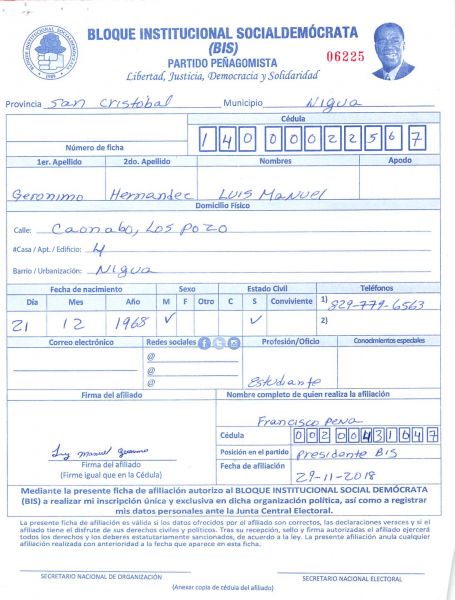 BLOQUE INSTITUCIONAL SOCIALDEMÓCRATA
(BIS)
PARTIDO PEÑAGOMISTA
06225
Libertad, Justicia, Democracia y Solidaridad
Provincia San Cristóbal Municipio Nigua
Cédula
Número de ficha 14000022567
1er. Apellido 2do. Apellido Nombres Apodo
Geronimo Hernandec Luis Manuel
Domicilio Físico
Calle: Caonabo, Los Pozo
#Casa / Apt. / Edificio: 4
Barrio / Urbanización: Nigua
Fecha de nacimiento Sexo Estado Civil Teléfonos
Día Mes Año M F Otro C S Conviviente 1) 829-779-6563
21 12 1968 ✓ ✓ 2)
Correo electrónico Redes sociales Profesión/Oficio Conocimientos especiales
@
@
@ Estudiante
Firma del afiliado Nombre completo de quien realiza la afiliación
Francisco Pena
Cédula 00200431647
Luy Manuel
Firma del afiliado
(Firme igual que en la Cédula)
Posición en el partido Presidente BIS
Fecha de afiliación 29-11-2018
Mediante la presente ficha de afiliación autorizo al BLOQUE INSTITUCIONAL SOCIAL DEMÓCRATA
(BIS) a realizar mi inscripción única y exclusiva en dicha organización política, así como a registrar
mis datos personales ante la Junta Central Electoral.
La presente ficha de afiliación es válida si los datos ofrecidos por el afiliado son correctos, las declaraciones veraces y si el
afiliado tiene el disfrute de sus derechos civiles y políticos. Tras su recepción, sello y firma autorizadas el afiliado ejercerá
todos los derechos y los deberes estatutariamente sancionados, de acuerdo a la ley. La presente afiliación anula cualquier
afiliación realizada con anterioridad a la fecha que aparece en esta ficha.
SECRETARIO NACIONAL DE ORGANIZACIÓN SECRETARIO NACIONAL ELECTORAL
(Anexar copia de cédula del afiliado)